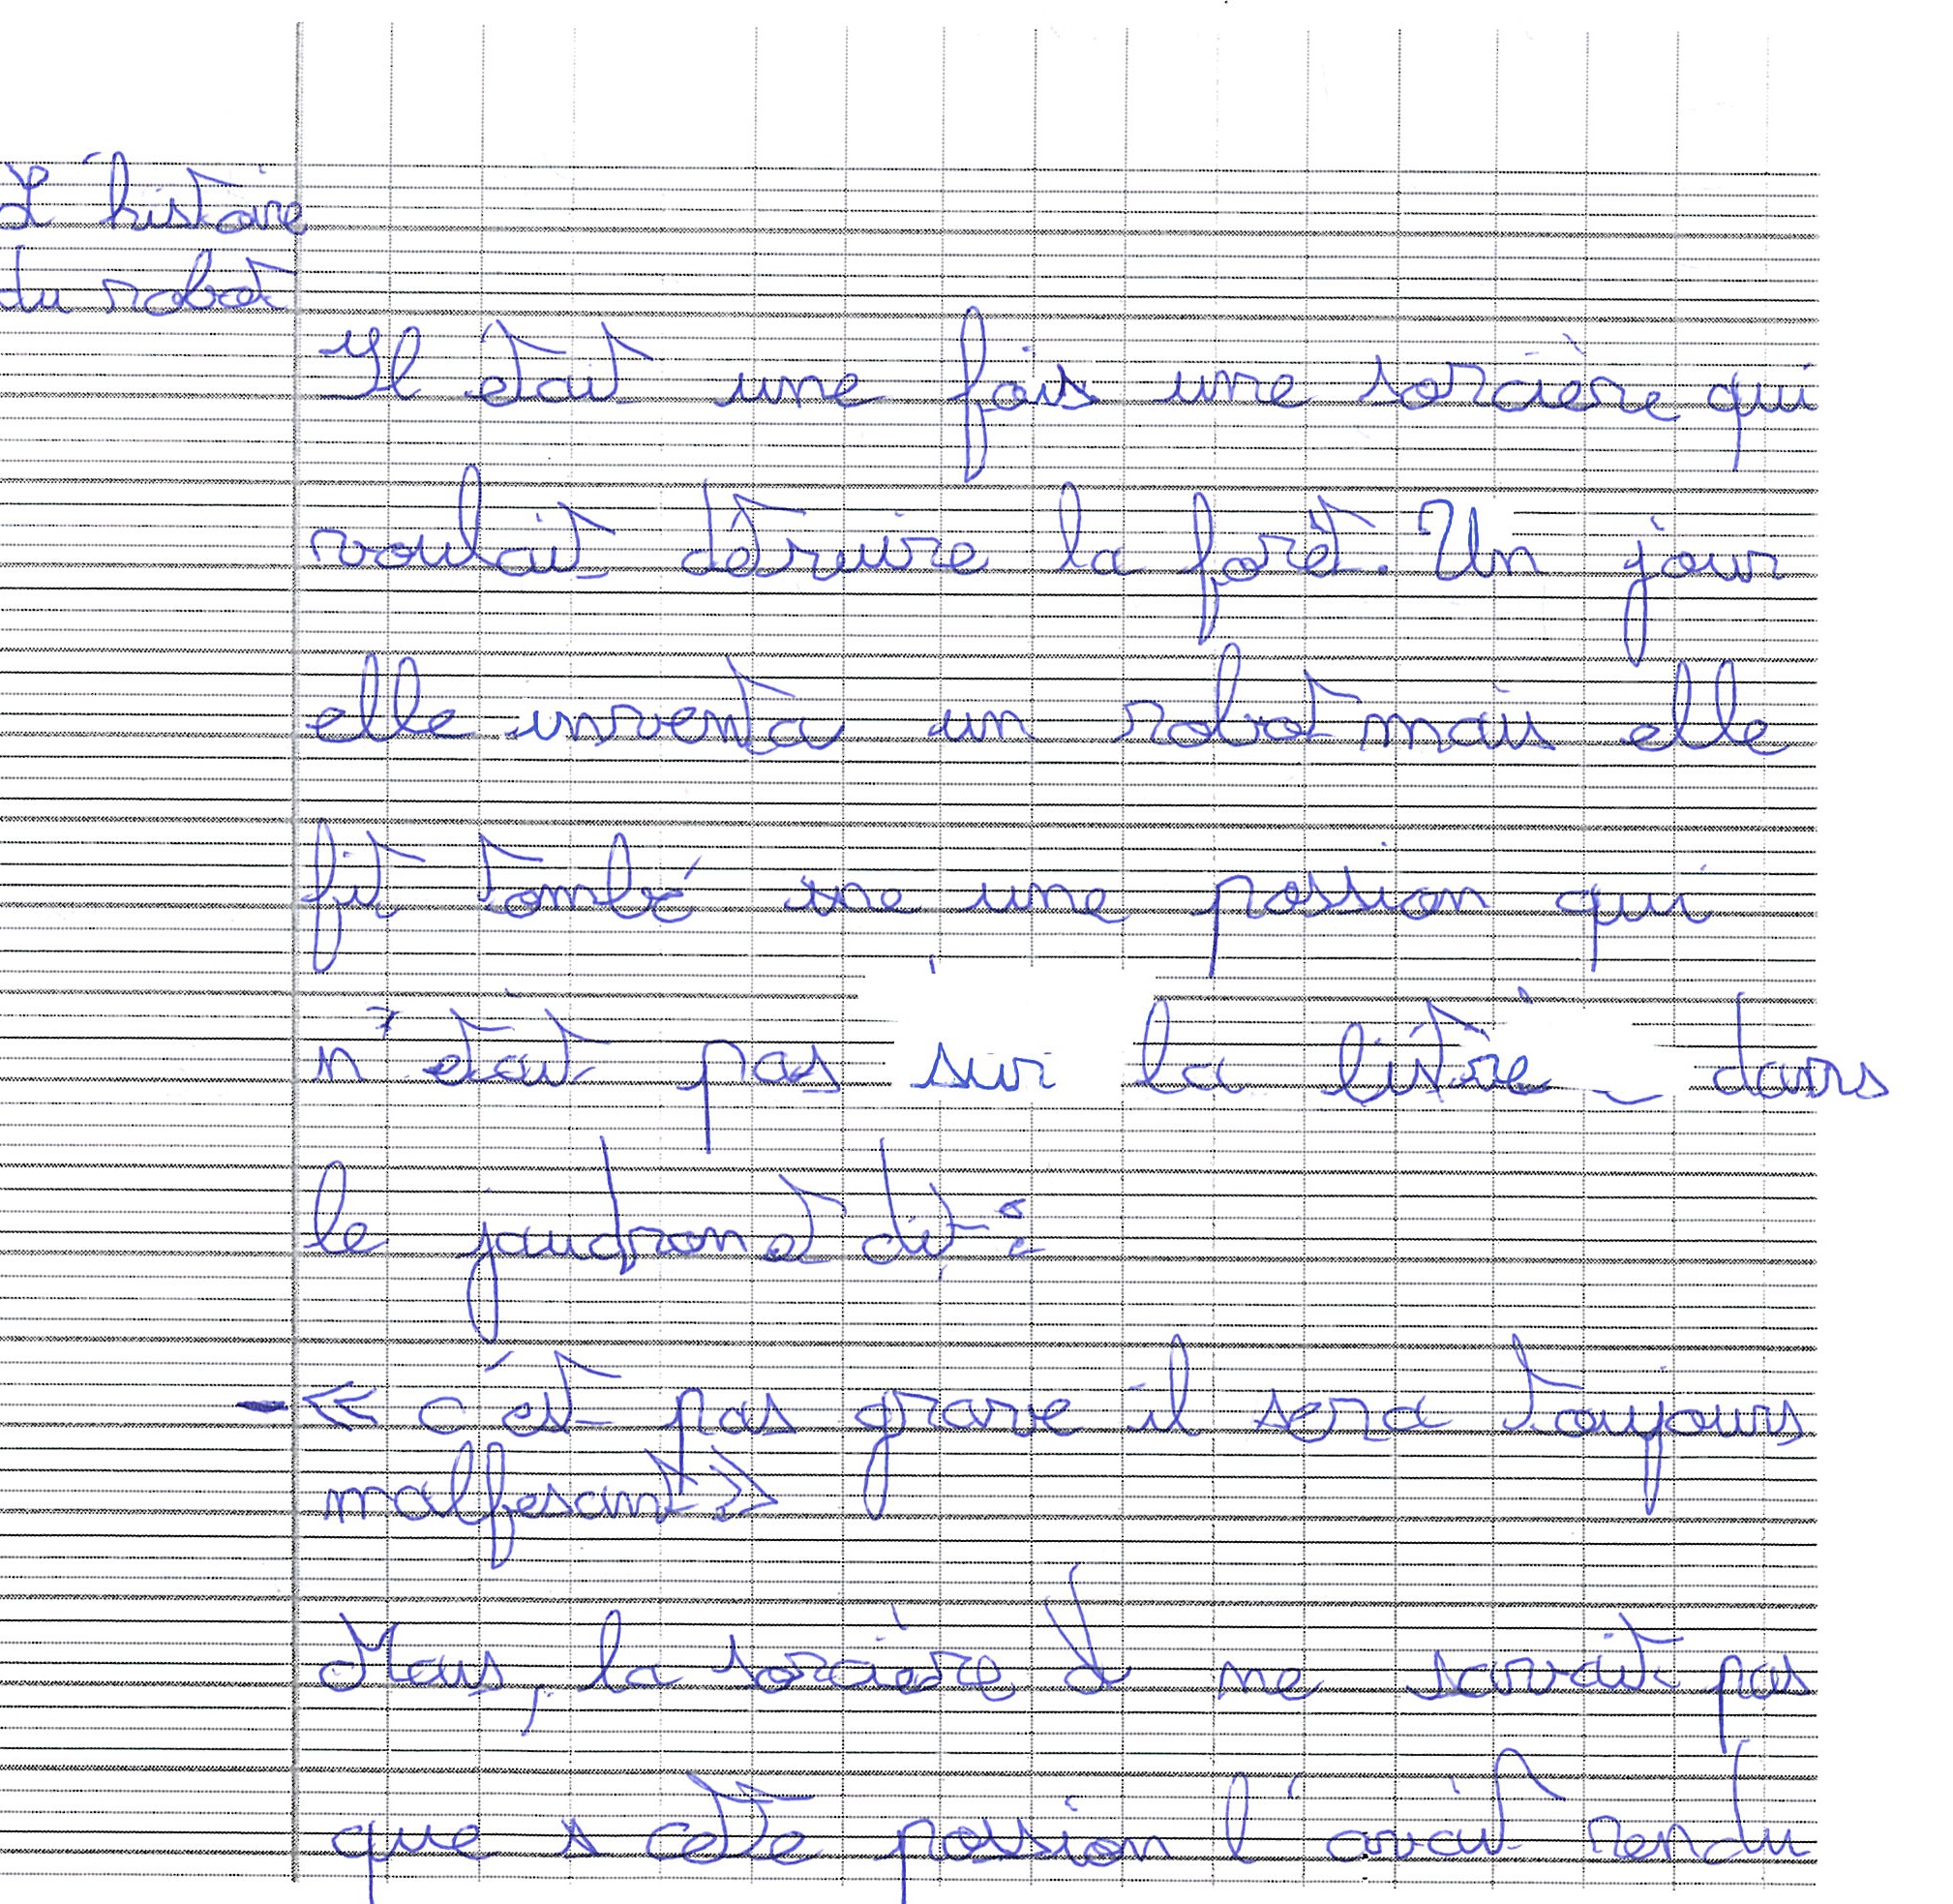 L'histoire
du robot
Il était une fois une sorcière qui
voulait détruire la forêt. Un jour
elle inventa un robot mais elle
fit tombé une une possion qui
n'était pas sur la listre dans
le jaudron et dit :
- « c'est pas grave il sera toujours
malfesant »
Mais, la sorcière d ne savait pas
que s cette possion l'avait rendu